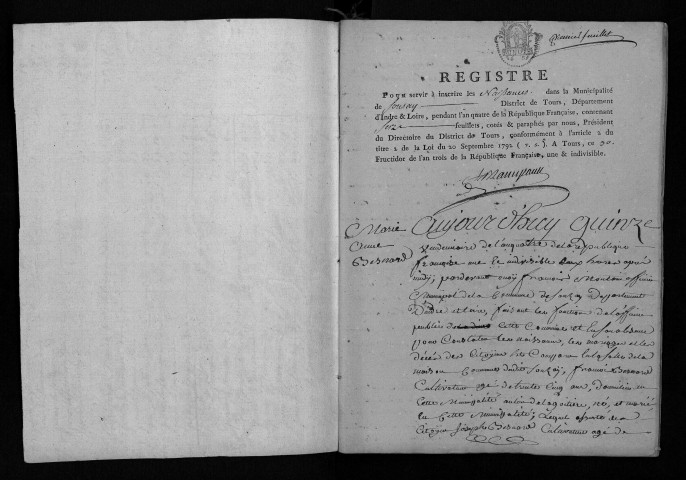 premier feuillet
REGISTRE
Pour servir à inscrire les Naissances dans la Municipalité
de Sonzay District de Tours, Département
d'Indre & Loire, pendant l'an quatre de la République Française, contenant
Seize feuillets, cotés & paraphés par nous, Président
du Directoire du District de Tours, conformément à l'article 2 du
titre 2 de la Loi du 20 Septembre 1792 (v. s.). A Tours, ce 30
Fructidor de l'an trois de la République Française, une & indivisible.
Marie
Anne
Besnard
Aujourd'huy quinze
Vendemiaire de l'an quatre de la republique
francoise une et indivisible deux heures apres
midy, pardevant moy francois officier
Municipal de la Commune de Sonzay Departement
d'indre et loire, faisant les fonction de l'officier
publicq cette Commune et
pour Constater les naissance, les mariages et les
décés de Citoyens la salle de la
maison Commune dudit Sonzay, francois Besnard
Cultivateur agé de trente cinq ans, domicilié en
Cette Municipalité, né, et marié
en Cette Municipalité; lequel assisté de
Citoyen Joseph Besnard Cultivateur agé de